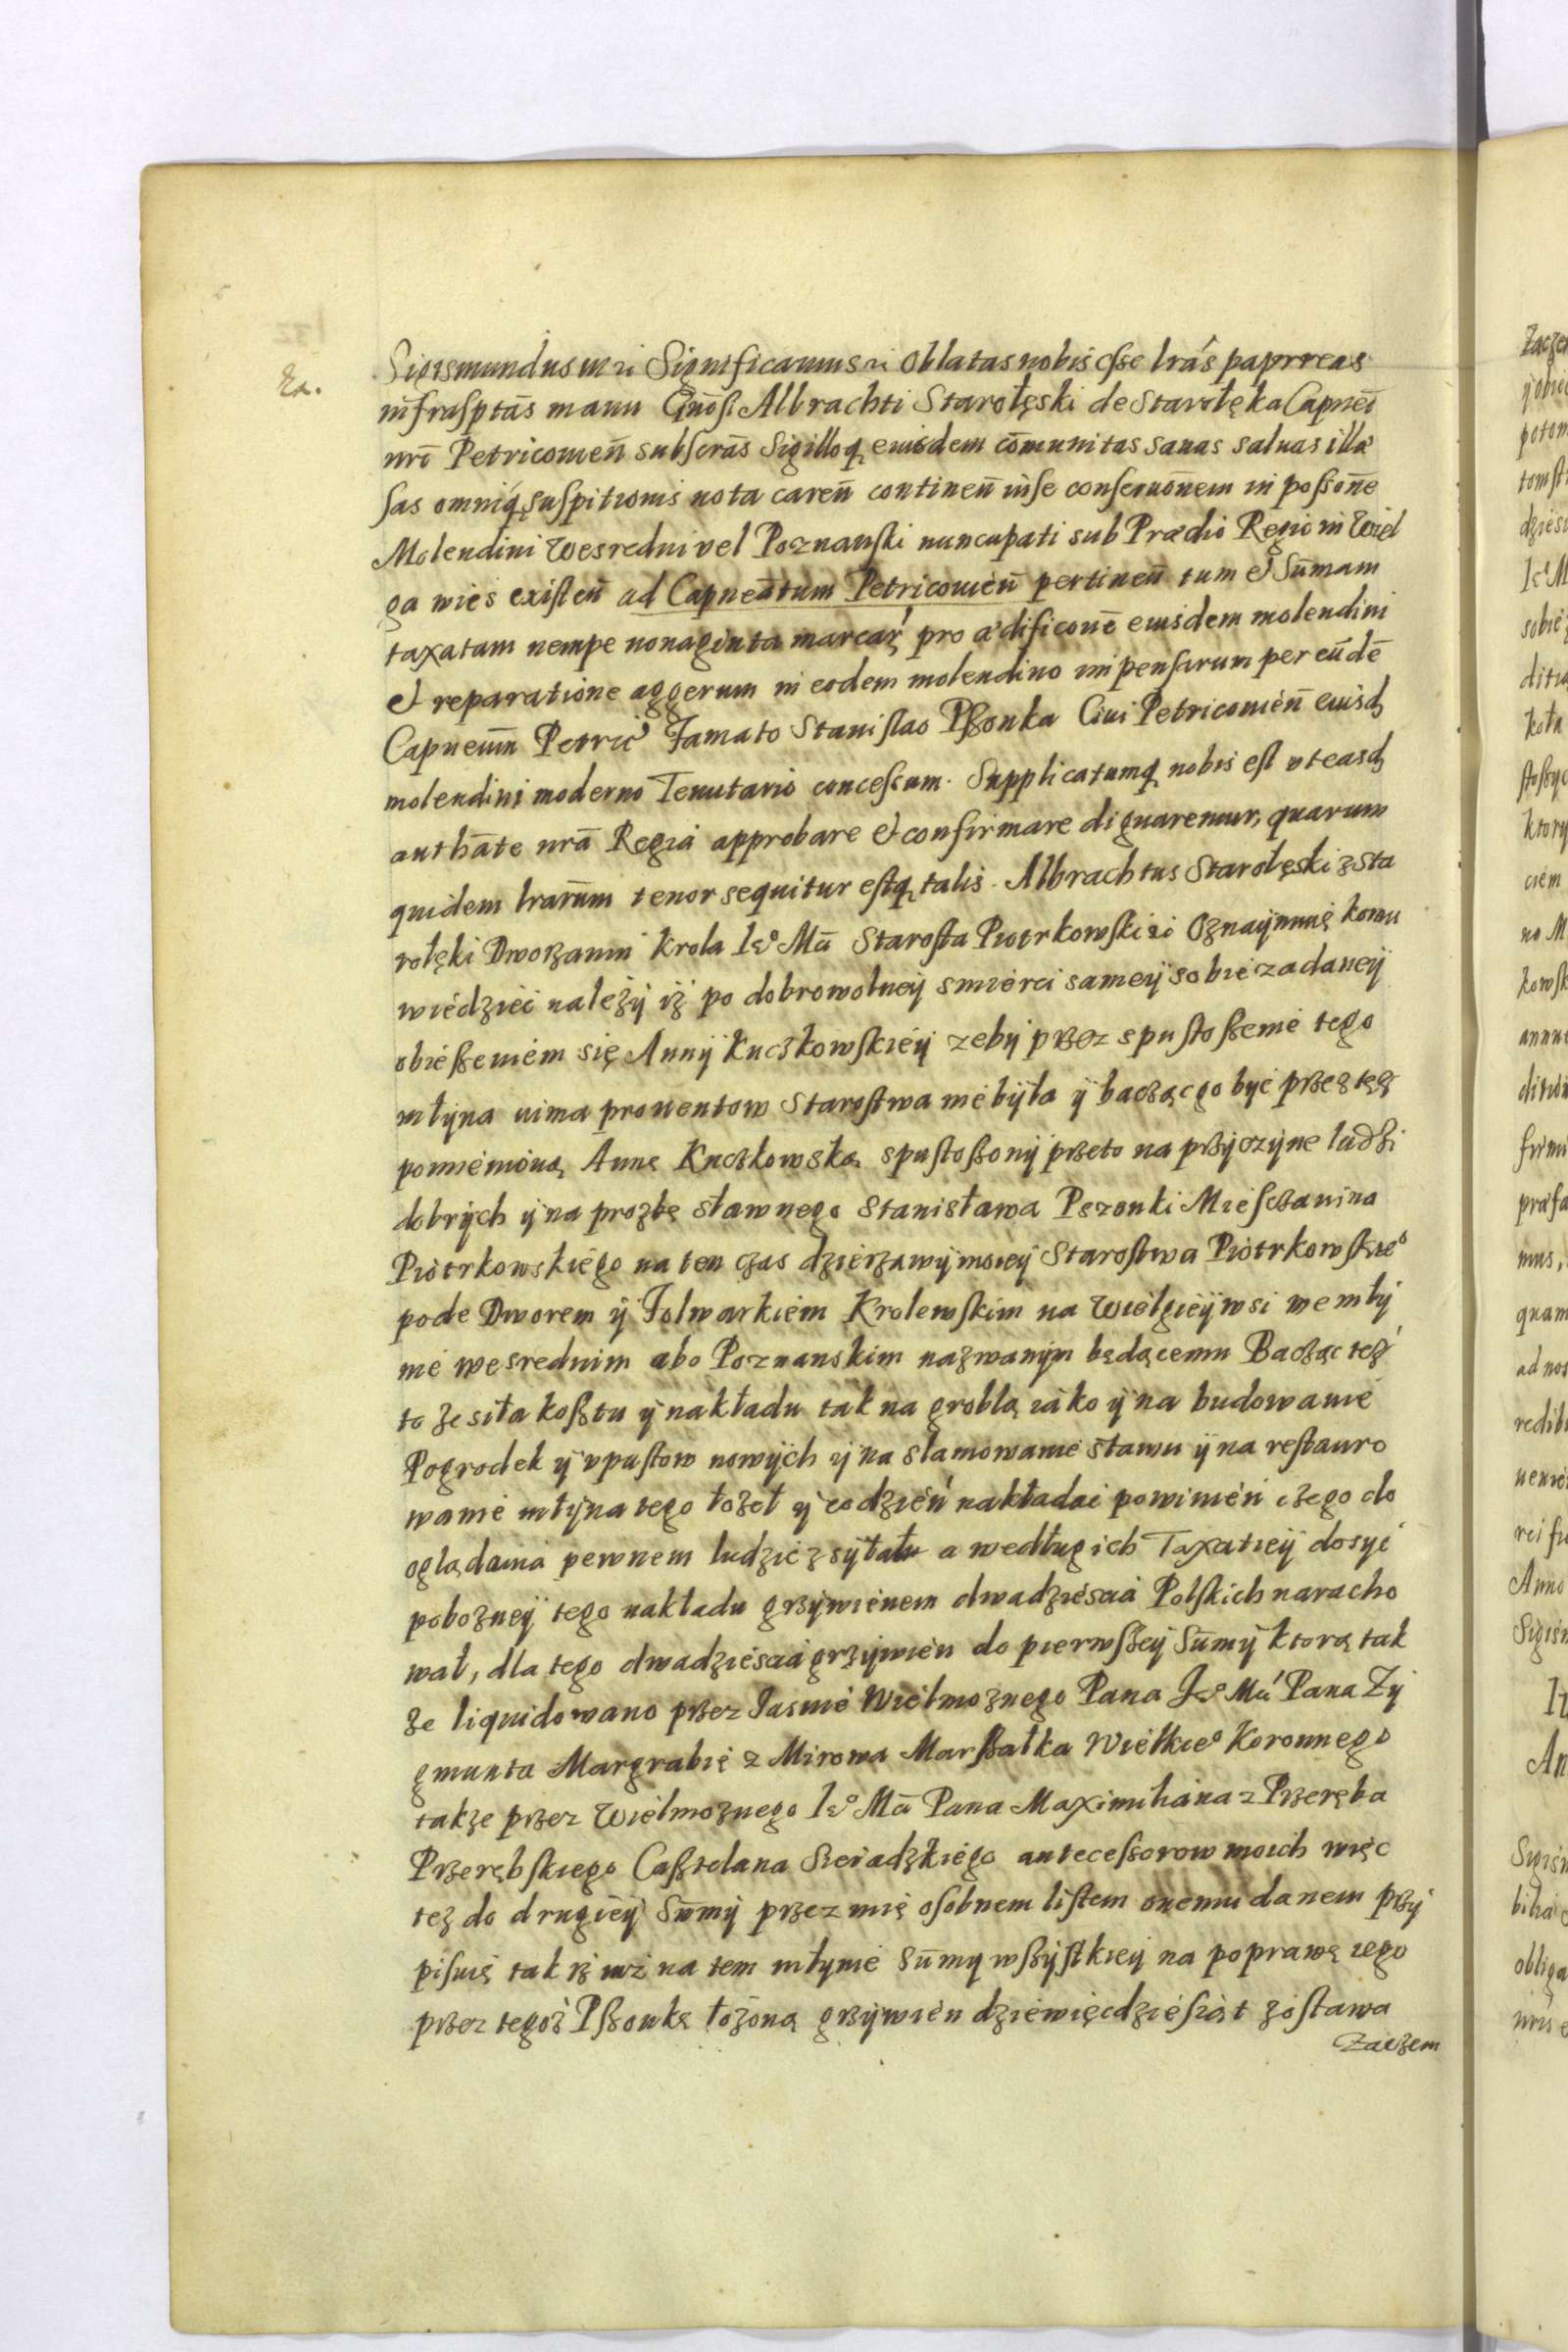 Ex.
Sigismundus III rc Significamus rc Oblatas nobis esse lrás papyreas
infrasptās manu Gnōsi Albrachti Starołęski de Starołęka Capneī
nrī Petricovien̄ subscrās Sigilloq; eiusdem cōmunitas sanas saluas illæ
sas omniq́; suspitionis nota caren̄ continen̄ in se conseruōnem in possōne
Molendini Wesredni vel Poznanski nuncupati sub Prædio Regio in Wiel
ga wies existen̄ ad Capneātum Petricouien̄ pertinen̄ tum et Sūmam
taxatam nempe nonaginta marcar̨ pro ædificōne eiusdem molendini
et reparatione aggerum in eodem molendino impensarum per eūdē
Capneum Petric̄ Famato Stanislao Pszonka Ciui Petricouien̄ eiusd;
molendini moderno Tenutario concessam. Supplicatumq; nobis est vt easd;
authāte nrā Regia approbare et confirmare dignaremur, quarum
quidem lrarūm tenor sequitur estq; talis. Albrachtus Starołęski z Sta
rołęki Dworzanin Krola Ie⁰ Mā Starosta Piotrkowski rc Oznaÿmuię komu
wiedzieć należÿ iż po dobrowolneÿ smierci sameÿ sobie zadaneÿ
obieszeniem się Annÿ Kuczkowskieÿ zebÿ przez spustoszenie tego
młÿna uima prouentow Starostwa nie bÿła ÿ bacząc go być przez tęż
pomienioną Annę Kuczkowską spustoszonÿ przeto na przÿczÿnę ludzi
dobrÿch ÿ na prozbę sławnego Stanisława Pszonki Miesczanina
Piotrkowskiego na ten czas dzierzawÿ moieÿ Starostwa Piotrkowskie⁰
pode Dworem ÿ Folwarkiem Krolewskim na Wielgieÿ wsi we młÿ
nie wesrednim abo Poznanskim nazwanÿm będącemu Bacząc też
to że siła kosztu ÿ nakładu tak na groblą iáko ÿ na budowanie
Pogrodek ÿ vpustow nowÿch ÿ na stamowanie stawu ÿ na restauro
wanie młÿna tego łożeł ÿ co dzień nakładać powinien czego do
oglądania pewnem ludzie zsÿłału a według ich Taxatieÿ dosÿć
pobożneÿ tego nakładu grzÿwienem dwadziescia Polskich naracho
wał, dla tego dwadziescia grzÿwien do pierwszeÿ Sūmÿ ktorą tak
że liquidowano przez Iasnie Wielmożnego Pana Ie⁰ Mā Pana Zÿ
gmunta Margrabię z Mirowa Marszałka Wielkie⁰ Koronnego
także przez Wielmożnego Ie⁰ Mā Pana Maximiliana z Przeręba
Przerębskiego Casztelana Sieradzkiego antecessorow moich więc
też do drugieÿ Sūmÿ przez mię osobnem listem onemu danem przÿ
pisuię tak iż iuż na tem młÿnie Sūmy wszÿstkieÿ na poprawę iego
przez tegoż Pszonkę łożoną grzÿwien dziewięcdziesiąt zostawa
Zaczem